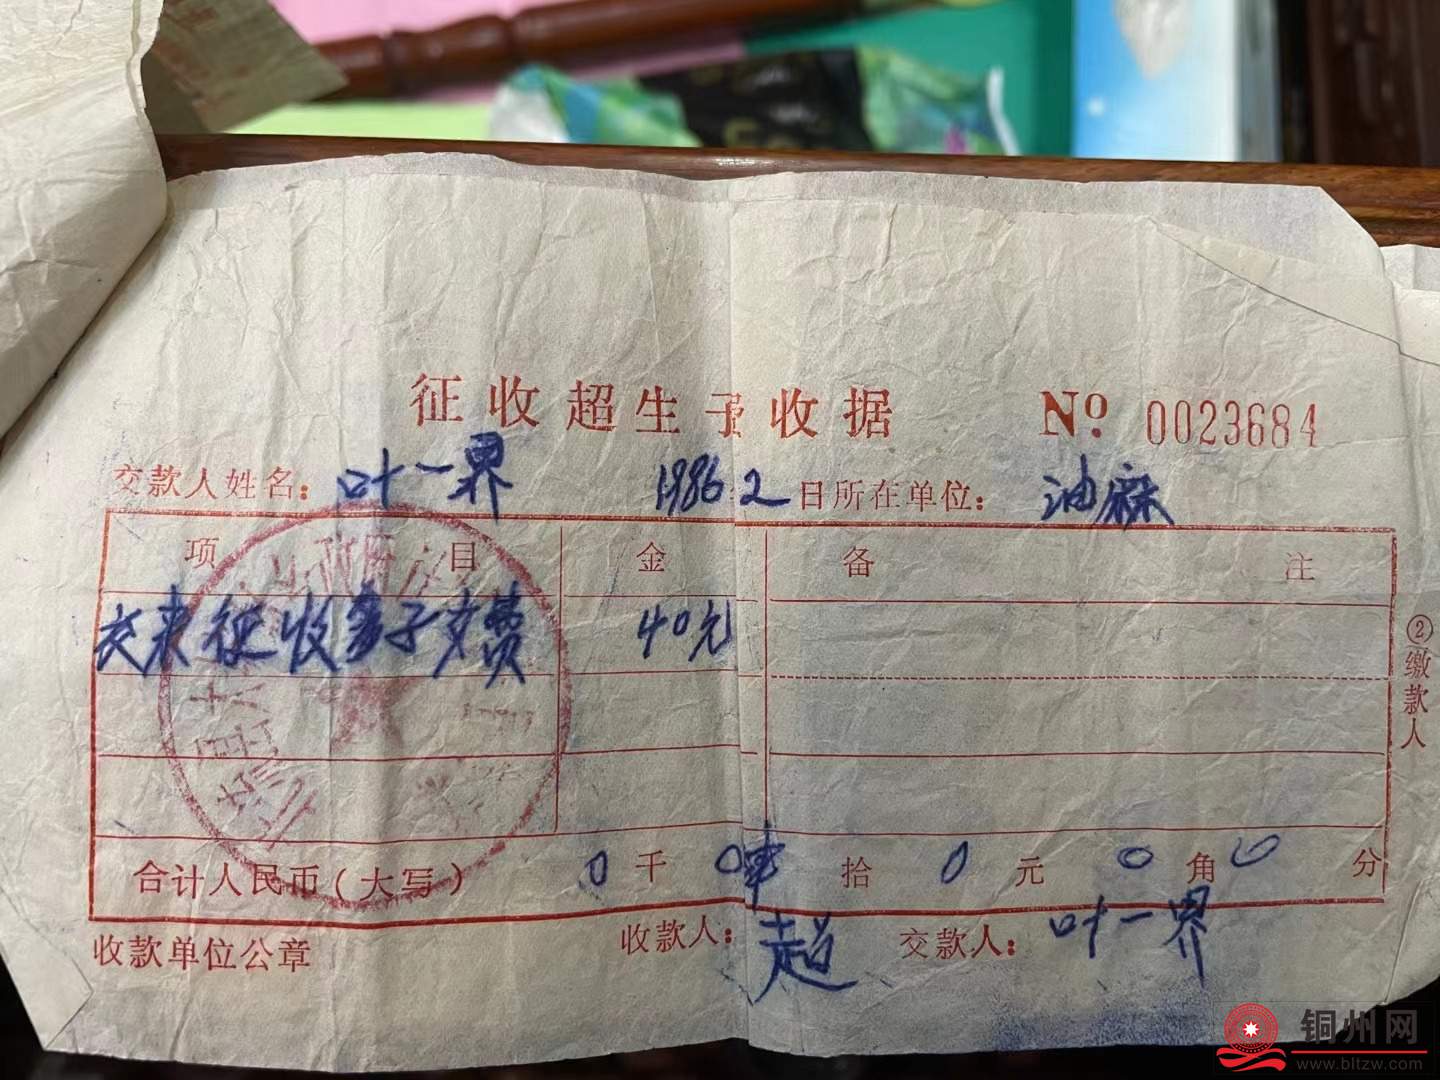 征收超生子收据 № 0023684
交款人姓名：叶一界 1986 2 日所在单位：油麻
项目 金 备注
征收多子女费 40元
②缴款人
合计人民币（大写） 0千 0 肆拾 0元 0角 0分
收款单位公章 收款人： 超 交款人：叶一界
铜州网
www.bltzw.com